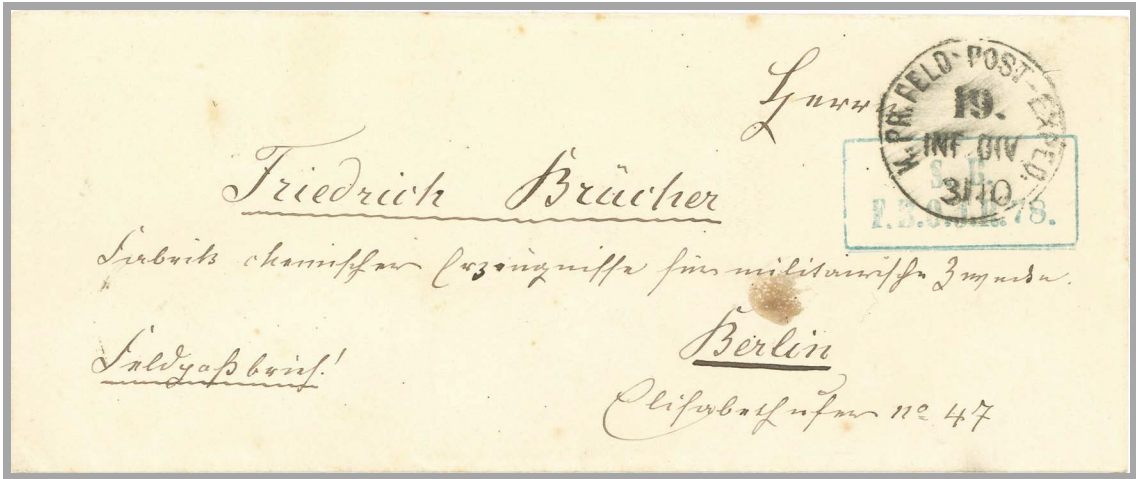 Herrn
K. PR. FELD-POST-EXPED.
19.
INF. DIV.
31/10
S. B.
F. B. O. J. R. 78.
Friedrich Brücher
Fabrik chemischer Erzeugnisse für militairische Zwecke.
Feldpostbrief!
Berlin
Elisabethufer no 47